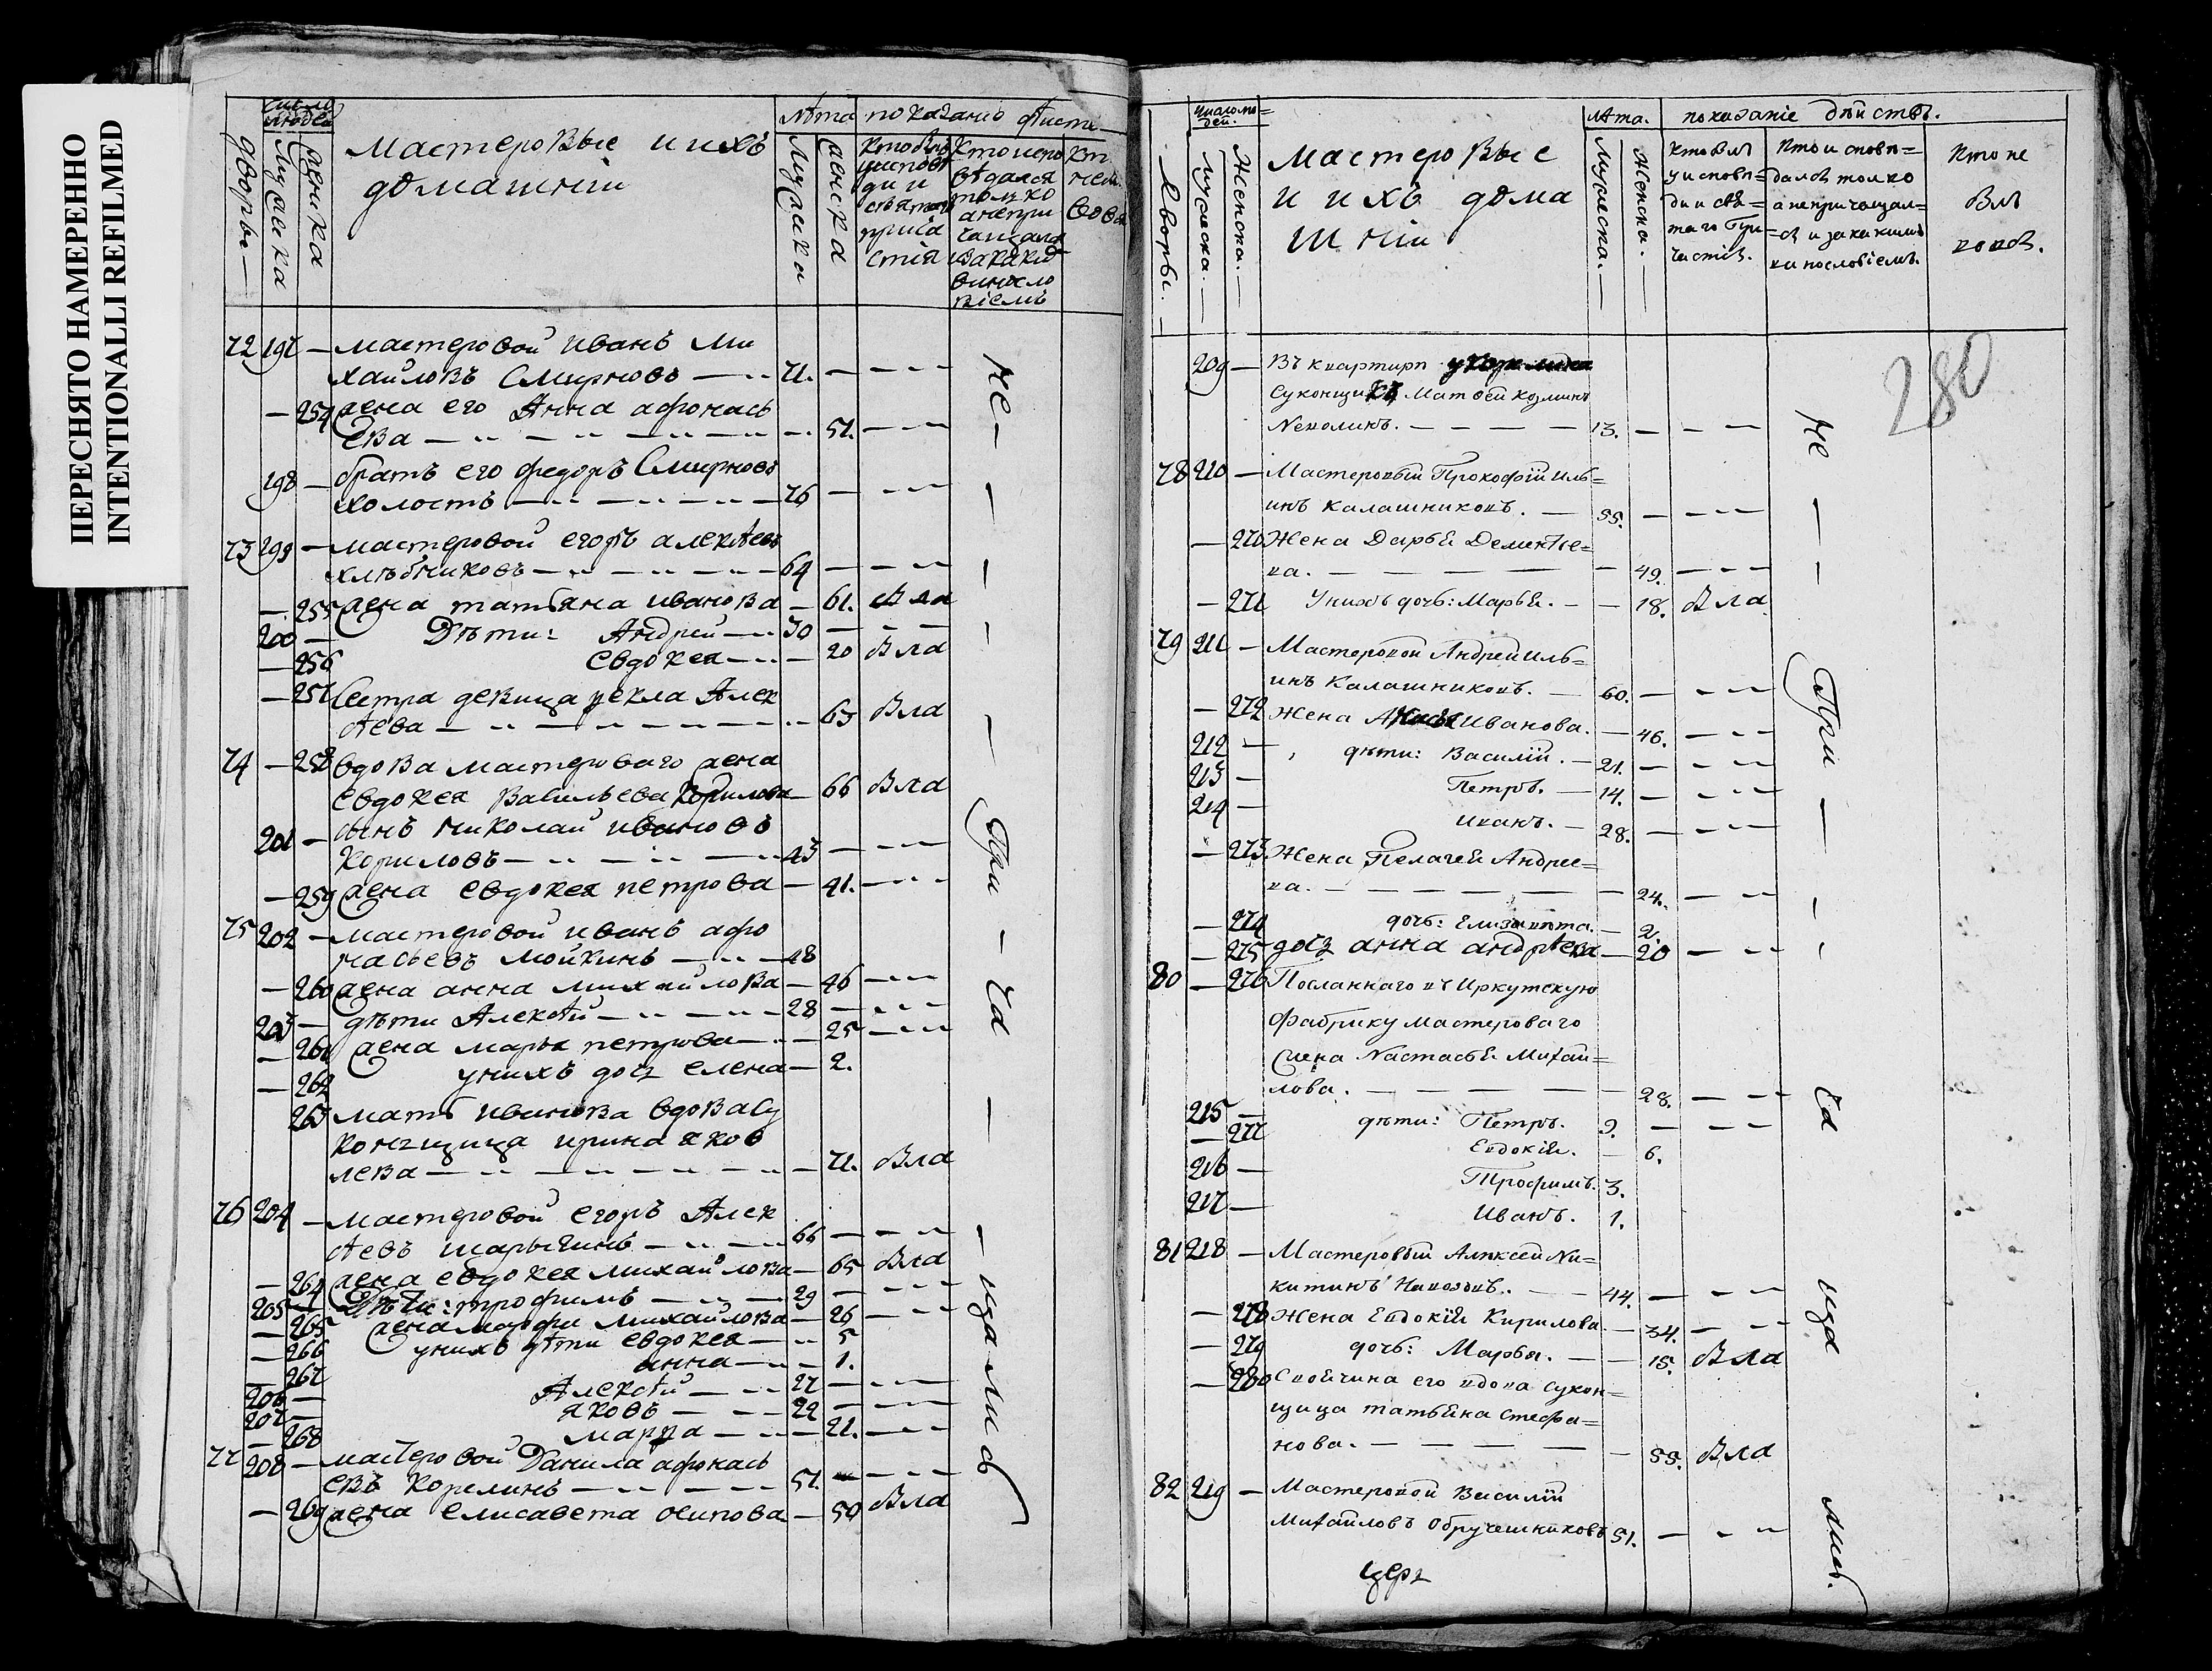 ПЕРЕСНЯТО НАМЕРЕННО
INTENTIONALLI REFILMED
число людей
лѣта показание дѣиств
дворы
мужеска
женска
мастеровые и ихъ
домашнии
мужеска
женска
72 197 — мастеровой иванъ Ми
хайловъ Смирновъ — 71.
— 254 жена его Анна афонась
ева — 51.
198 — братъ его федоръ Смирновъ
холостъ — 76
73 199 — мастеровой егоръ алексѣевъ
хлѣбниковъ — 64
— 255 жена татьяна иванова — 61. Была
200 — Дѣти: Андрей — 30
— 256 Евдокея — 20 Была
— 257 Сестра девица фекла Алек
сѣева — 63 Была
74 — 258 вдова мастероваго жена
Евдокея Васильева Корилова — 66 Была
201 — сынъ николай ивановъ
Кориловъ — 43
— 259 жена евдокея петрова — 41.
75 202 — мастеровой иванъ афо
насьевъ мойкинъ — 48
— 260 жена анна михайлова — 46
203 — дѣти Алексѣй — 28
— 261 жена марья петрова — 25
— 262 унихъ дочь елена — 2.
263 мать иванова вдова су
конщица ирина яков
лева — 71. Была
76 204 — мастеровой егоръ Алек
сѣевъ шарыгинъ — 66
— 264 жена евдокея михайлова — 65 Была
205 — Дѣти: трофимъ — 29
— 265 жена марфа михайлова — 26
— 266 унихъ дѣти евдокея — 5
— 267 анна — 1.
206 — Алексѣй — 27
207 — яковъ — 22
— 268 марфа — 21.
77 208 — мастеровой Данила афонась
евъ Корелинъ — 51.
— 269 жена елисавета осипова — 50 Была
не — при — ча — щались
число лю=
дей.
лѣта. показаніе дѣйствъ.
Дворы.
мужеска.
Женска.
Мастеровые
и ихъ дома
шніи
Мужеска.
Женска.
кто былъ
у исповѣ=
ди и свя=
таго При
частія.
Кто исповѣ=
дался толко
а непричащал=
ся и за какимъ
винословіемъ.
Кто не
былъ
вовся.
280
209 — Въ квартирѣ
суконщикъ Матвей козминъ
Неполинъ. — 13.
78 210 — Мастеровый Прокофій иль=
инъ калашниковъ. — 55.
— 270 Жена Дарья Дементье=
ва. — 49.
— 271 Унихъ дочь: Марья. — 18. Была
79 211 — Мастеровой Андрей иль=
инъ Калашниковъ. — 60.
— 272 Жена Иванова. — 46.
212 — дѣти: Василій. — 21.
213 — Петръ. — 14.
214 — иванъ. — 28.
— 273 Жена Пелагея Андрее=
ва. — 24.
— 274 дочь: Елизавета. — 2.
— 275 дочь анна андрѣева — 20
80 — 276 Посланнаго въ Иркутскую
фабрику мастероваго
жена Настасья Михаи=
лова. — 28.
215 — дѣти: Петръ. 9.
— 277 Евдокія. — 6.
216 — Трофимъ. 3.
217 — Иванъ. 1.
81 218 — Мастеровый Алексей Ни=
китинъ — 44.
— 278 Жена Евдокія Кирилова. — 34.
— 279 дочь: Марья. — 15. Была
— 280 Своячина его вдова сукон=
щица татьяна стефа=
нова. — 55. Была
82 219 — Мастеровой Василій
Михайловъ Обручешниковъ 51.
Не — При — ча ща лись.
церк